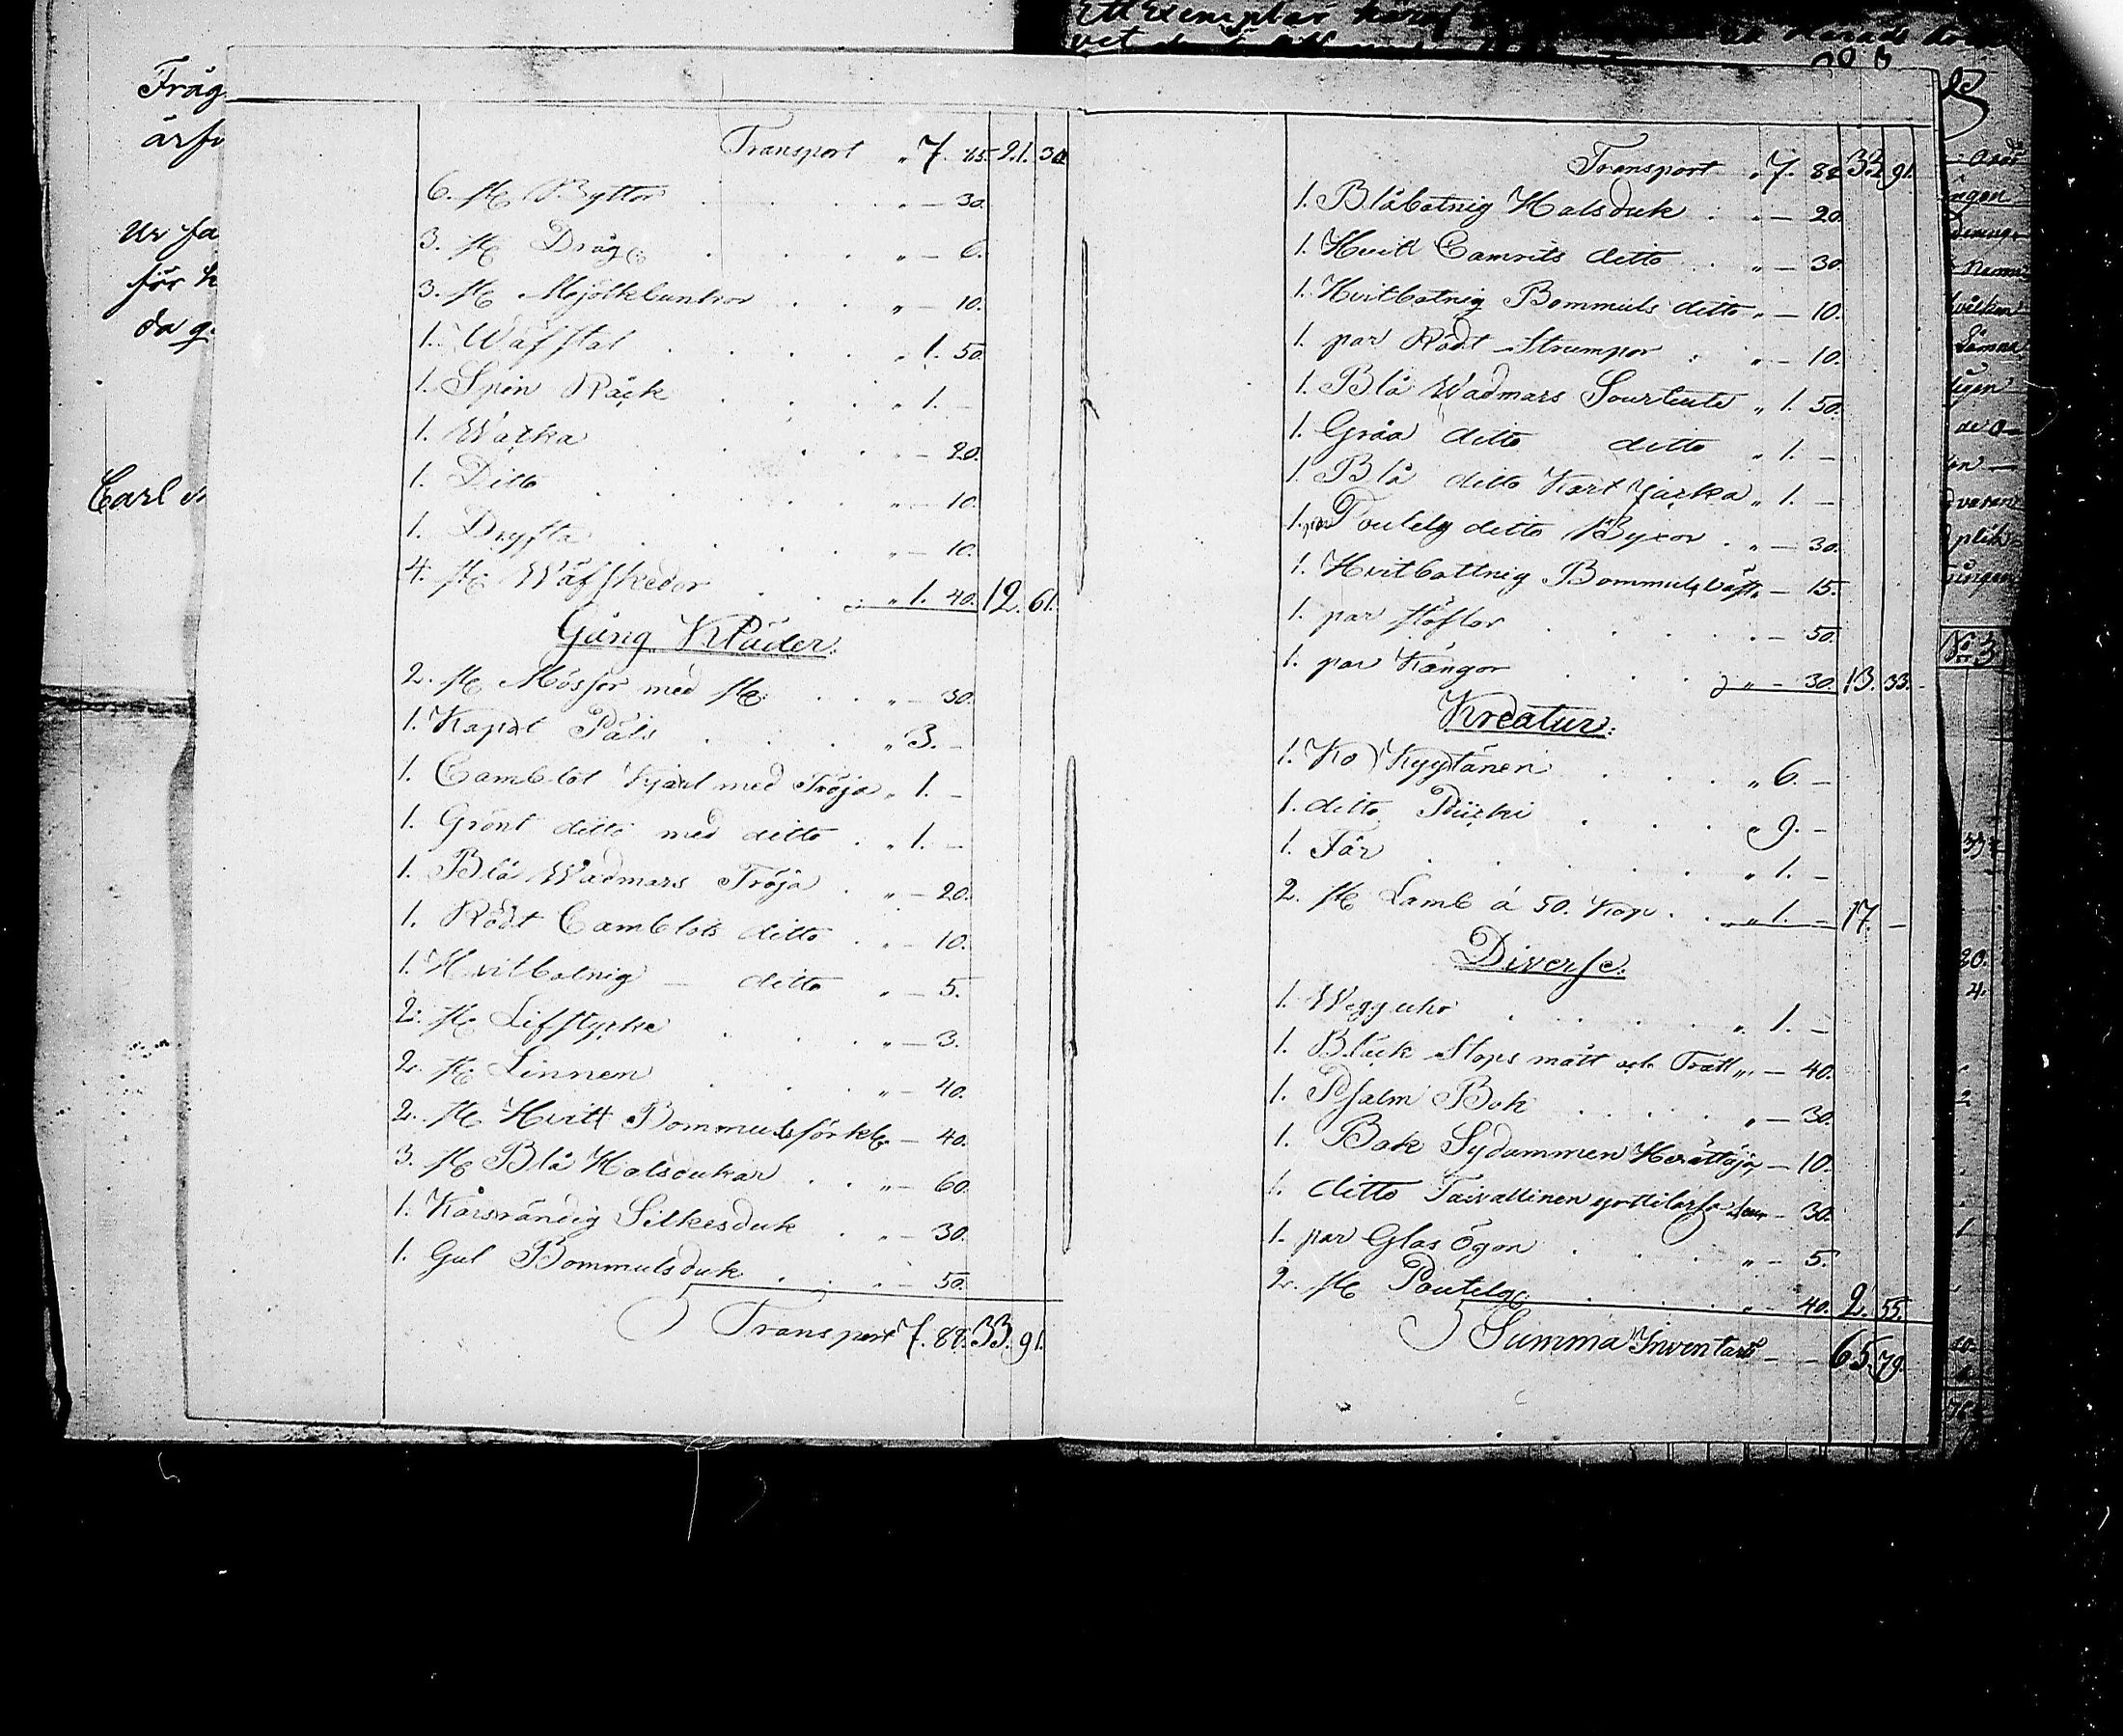 Transport „ 7. 85. 21. 30
6. st. Byttor „ — 30.
3. st. Dråg „ — 6.
3. st. Mjölkbunkar „ — 10.
1. Wäfstol „ 1. 50.
1. Spin Råck „ 1. —
1. Wacka „ — 20.
1. Ditto „ — 10.
1. Dryfta „ — 10.
4. st. Wäfskedar „ 1. 40. 12. 61.
Gång Kläder.
2. st. Mössor med st. „ — 30.
1. Kapat Päls „ 3. —
1. Camblot Kjorl med Tröja „ 1. —
1. Grönt ditto med ditto „ 1. —
1. Blå Wadmars Tröja „ — 20.
1. Rödt Camblots ditto „ — 10.
1. Hvitbotnig — ditto „ — 5.
2. st. Lifstycke „ — 3.
2. st. Linnen „ — 40.
2. st. Hvitt Bommulsförkl. — 40.
3. st. Blå Halsdukar „ — 60.
1. Korsrändig Silkesduk „ — 30.
1. Gul Bommulsduk „ — 50.
Transport 7. 88. 33. 91.
Transport „ 7. 88 33 91.
1. Blåbotnig Halsduk „ — 20.
1. Hvitt Camrits ditto „ — 30.
1. Hvitbotnig Bommuls ditto „ — 10.
1. par Rödt Strumpor „ — 10.
1. Blå Wadmars Sourteute „ 1. 50.
1. Gråa ditto ditto „ 1. —
1. Blå ditto Kort Jacka „ 1. —
1. par ditto Byxor „ — 30.
1. Hvitbottnig Bommuls Väst „ — 15.
1. par stöflor „ — 50.
1. par Kängor „ — 30. 13. 33.
Kreatur:
1. Ko Kyytänen „ 6. —
1. ditto „ 9. —
1. Får „ 1. —
2. st. Lamb á 50. Kop. „ 1. — 17. —
Diverse.
1. Wägguhr „ 1. —
1. Bläck Stops mått och Tratt „ — 40.
1. Psalm Bok „ — 30.
1. Bok Sydammen — 10.
1. ditto Taivallinen — 30.
1. par Glas ögon „ — 5.
2. st. „ — 40. 2. 55.
Summa Inventarie — 65. 79.
Fråg
Carl
No 3